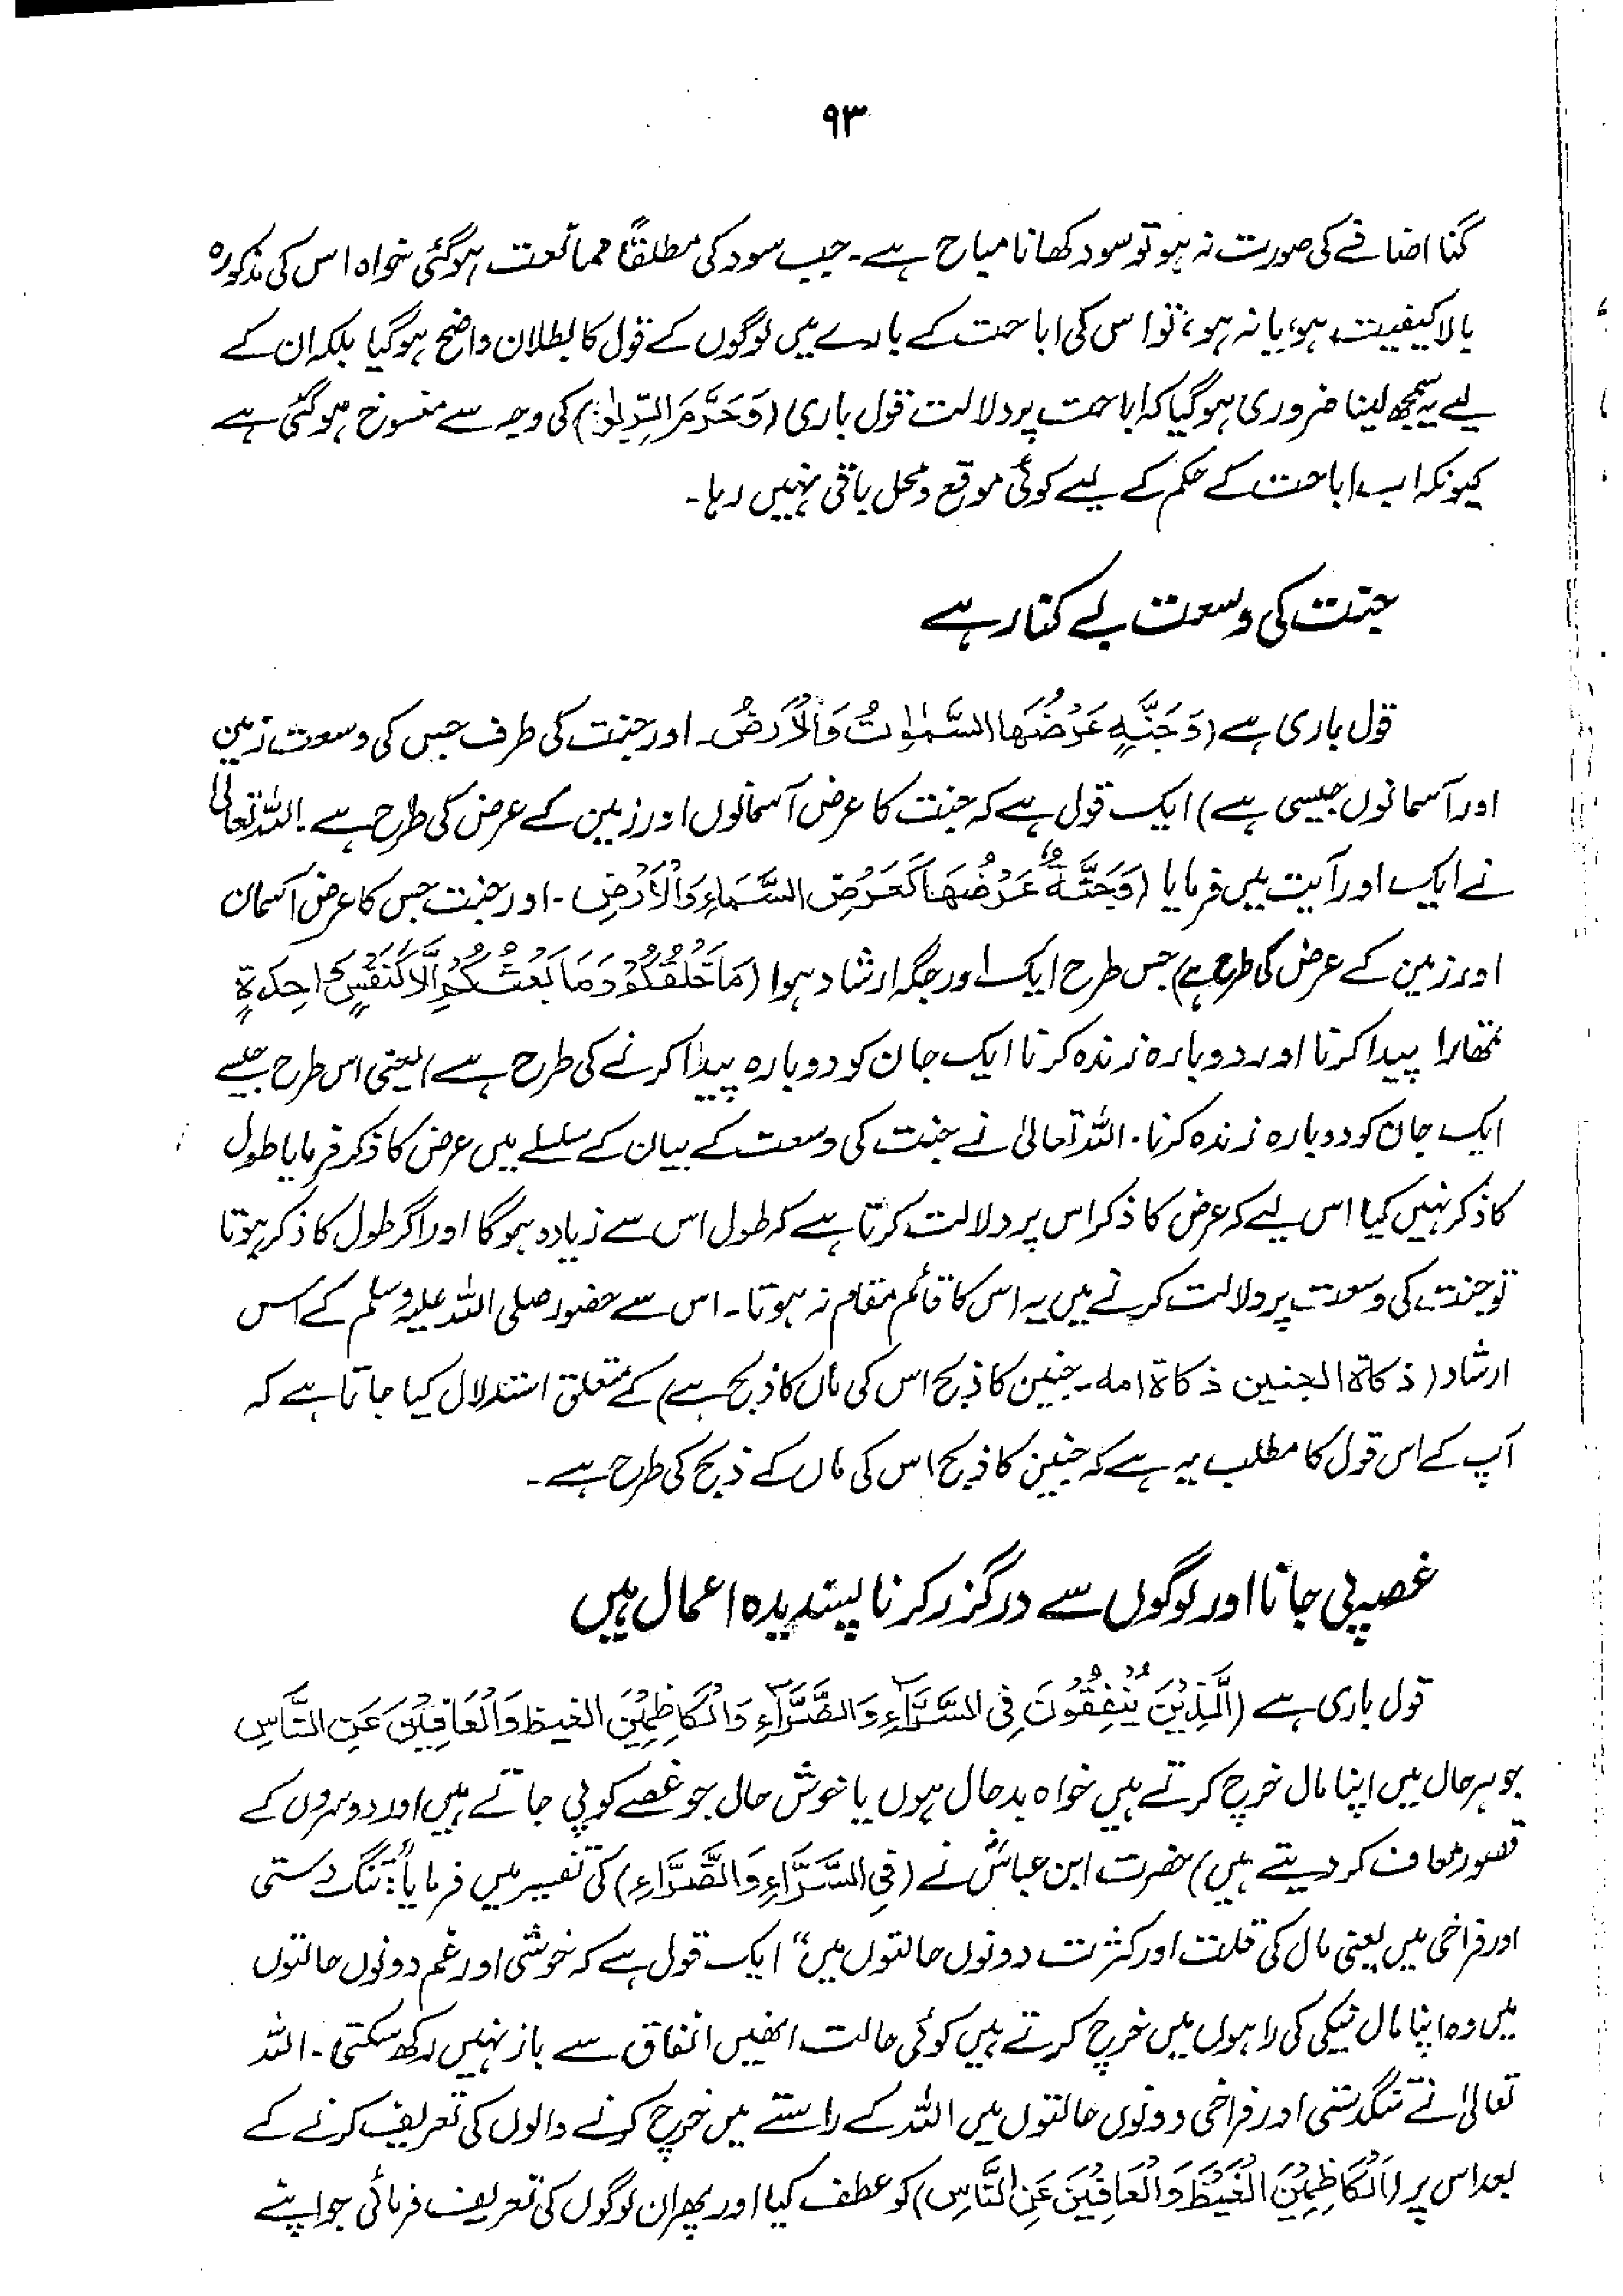 ۹۳
گنا اضافے کی صورت نہ ہو تو سود کھانا مباح ہے۔ جب سود کی مطلقاً ممانعت ہوگئی خواہ اس کی مذکورہ
بالا کیفیت ہو، یا نہ ہو، تو اس کی اباحت کے بارے میں لوگوں کے قول کا بطلان واضح ہوگیا بلکہ ان کے
لیے یہ سمجھ لینا ضروری ہوگیا کہ اباحت پر دلالت قول باری (وَحَرَّمَ الرِّبٰوا) کی وجہ سے منسوخ ہوگئی ہے
کیونکہ اب اباحت کے حکم کے لیے کوئی موقع و محل باقی نہیں رہا۔
جنت کی وسعت بے کنار ہے
قول باری ہے (وَجَنَّةٍ عَرْضُهَا السَّمٰوٰتُ وَالْاَرْضُ۔ اور جنت کی طرف جس کی وسعت زمین
اور آسمانوں جیسی ہے) ایک قول ہے کہ جنت کا عرض آسمانوں اور زمین کے عرض کی طرح ہے۔ اللہ تعالیٰ
نے ایک اور آیت میں فرمایا (وَجَنَّةٌ عَرْضُهَا كَعَرْضِ السَّمَاءِ وَالْاَرْضِ۔ اور جنت جس کا عرض آسمان
اور زمین کے عرض کی طرح ہے) جس طرح ایک اور جگہ ارشاد ہوا (مَا خَلْقُكُمْ وَمَا بَعْثُكُمْ اِلَّا كَنَفْسٍ وَّاحِدَةٍ
تمھارا پیدا کرنا اور دوبارہ زندہ کرنا ایک جان کو دوبارہ پیدا کرنے کی طرح ہے) یعنی اس طرح جیسے
ایک جان کو دوبارہ زندہ کرنا۔ اللہ تعالیٰ نے جنت کی وسعت کے بیان کے سلسلے میں عرض کا ذکر فرمایا طول
کا ذکر نہیں کیا اس لیے کہ عرض کا ذکر اس پر دلالت کرتا ہے کہ طول اس سے زیادہ ہوگا اور اگر طول کا ذکر ہوتا
تو جنت کی وسعت پر دلالت کرنے میں یہ اس کا قائم مقام نہ ہوتا۔ اس سے حضور صلی اللہ علیہ وسلم کے اس
ارشاد (ذكاة الجنين ذكاة امه۔ جنین کا ذبح اس کی ماں کا ذبح ہے) کے متعلق استدلال کیا جاتا ہے کہ
آپ کے اس قول کا مطلب یہ ہے کہ جنین کا ذبح اس کی ماں کے ذبح کی طرح ہے۔
غصہ پی جانا اور لوگوں سے درگزر کرنا پسندیدہ اعمال ہیں
قول باری ہے (اَلَّذِيْنَ يُنْفِقُوْنَ فِى السَّرَّآءِ وَالضَّرَّآءِ وَالْكَاظِمِيْنَ الغيظ وَالْعَافِيْنَ عَنِ النَّاسِ
جو ہر حال میں اپنا مال خرچ کرتے ہیں خواہ بدحال ہوں یا خوش حال جو غصے کو پی جاتے ہیں اور دوسروں کے
قصور معاف کر دیتے ہیں) حضرت ابن عباسؓ نے (فِى السَّرَّاءِ وَالضَّرَّاءِ) کی تفسیر میں فرمایا: "تنگ دستی
اور فراخی میں یعنی مال کی قلت اور کثرت دونوں حالتوں میں" ایک قول ہے کہ خوشی اور غم دونوں حالتوں
میں وہ اپنا مال نیکی کی راہوں میں خرچ کرتے ہیں کوئی حالت انھیں انفاق سے باز نہیں رکھ سکتی۔ اللہ
تعالیٰ نے تنگدستی اور فراخی دونوں حالتوں میں اللہ کے راستے میں خرچ کرنے والوں کی تعریف کرنے کے
بعد اس پر (اَلْكَاظِمِيْنَ الْغَيْظَ وَالْعَافِيْنَ عَنِ النَّاسِ) کو عطف کیا اور پھر ان لوگوں کی تعریف فرمائی جو اپنے